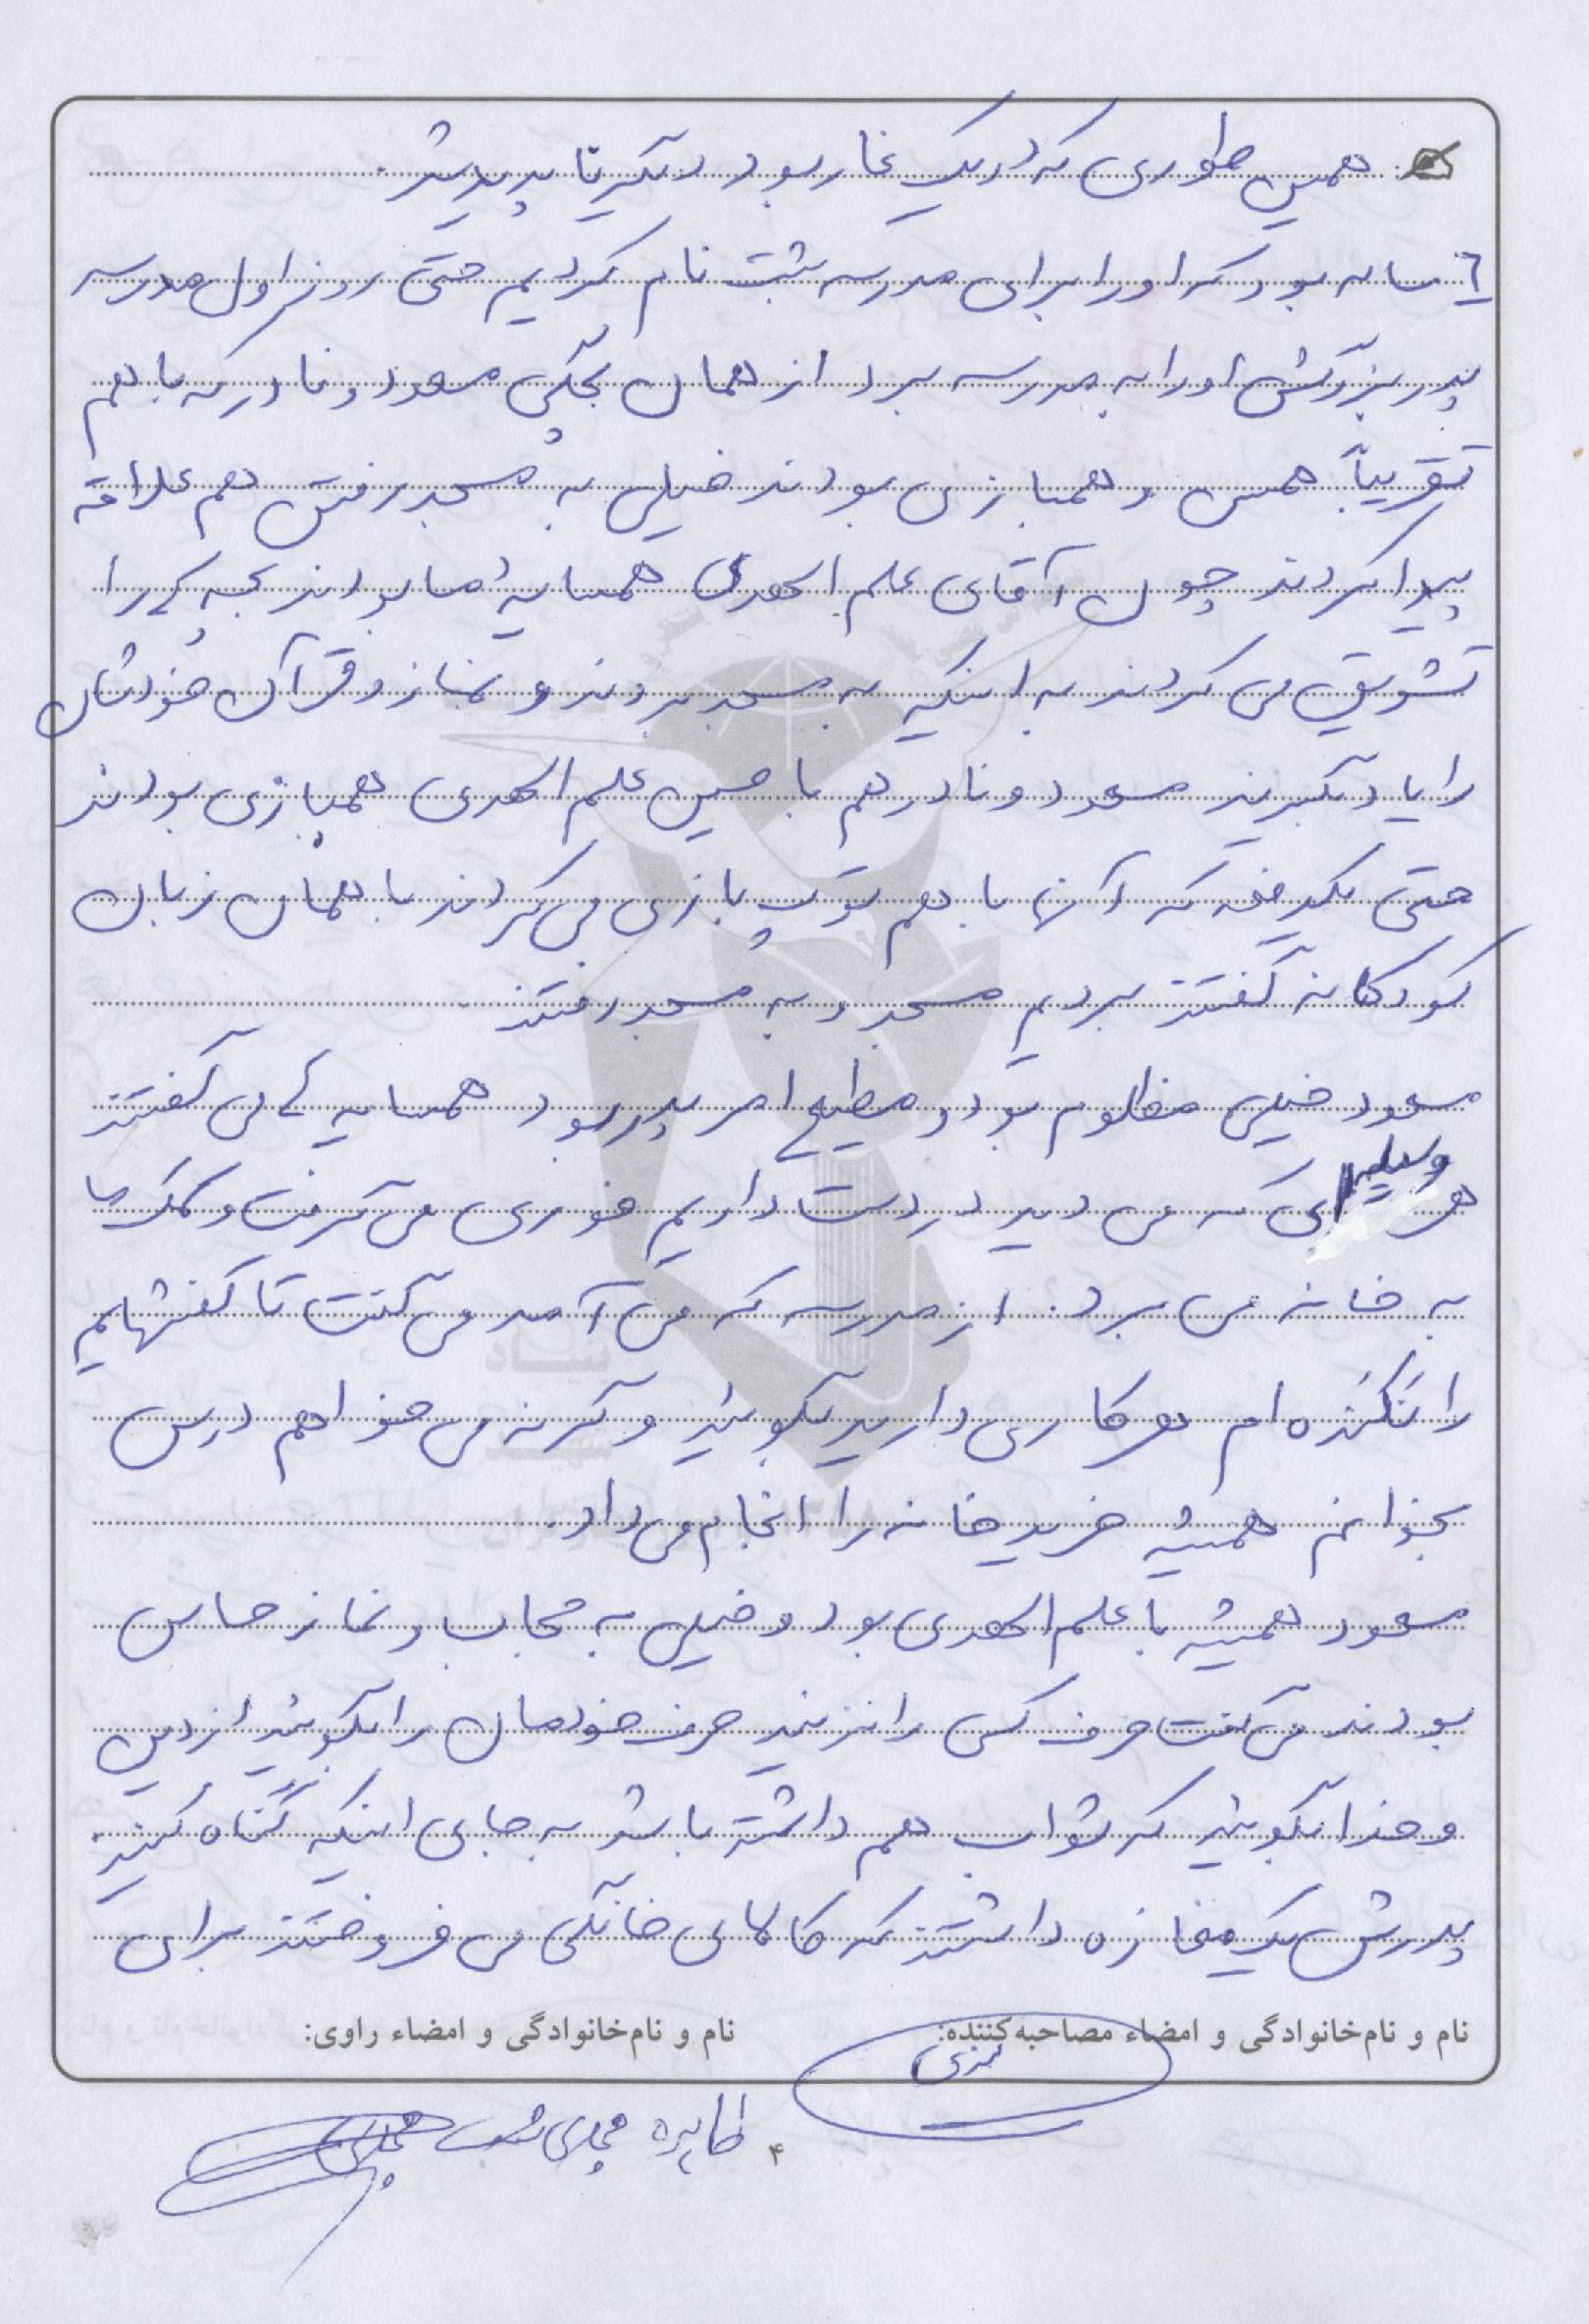 همین طوری که در یک غار بود دیگر ناپدید شد.
٦ ساله بود که او را برای مدرسه ثبت نام کردیم حتی روز اول مدرسه
پدربزرگش او را به مدرسه برد از همان بچگی مسعود و نادر که با هم
تقریباً همسن و همبازی بودند خیلی به مسجد رفتن هم علاقه
پیدا کردند چون آقای علم الهدی همسایه ما بودند بچه ها را
تشویق می کردند به اینکه به مسجد بروند و نماز و قرآن خودشان
را یاد بگیرند مسعود و نادر هم با حسین علم الهدی همبازی بودند
حتی یکدفعه که آنها با هم توپ بازی می کردند با همان زبان
کودکانه گفتند برویم مسجد و به مسجد رفتند
مسعود خیلی مظلوم بود و مطیع امر پدر بود همسایه ها می گفتند
هر وسیله ای که می دید در دست داریم فوری می گرفت و کمک ما
به خانه می برد. از مدرسه که می آمد می گفت تا کفشهایم
را نکنده ام هر کاری دارید بگوئید وگرنه می خواهم درس
بخوانم همیشه خرید خانه را انجام می داد.
مسعود همیشه با علم الهدی بود و خیلی به حجاب و نماز حساس
بودند می گفت حرف کسی را نزنید حرف خودمان را بگوئید از دین
و خدا بگوئید که ثواب هم داشته باشد به جای اینکه گناه کنید.
پدرش یک مغازه داشتند که کالای خانگی می فروختند برای
نام و نام‌خانوادگی و امضاء مصاحبه‌کننده:
نام و نام‌خانوادگی و امضاء راوی:
طاهره مجدی نسب
۴